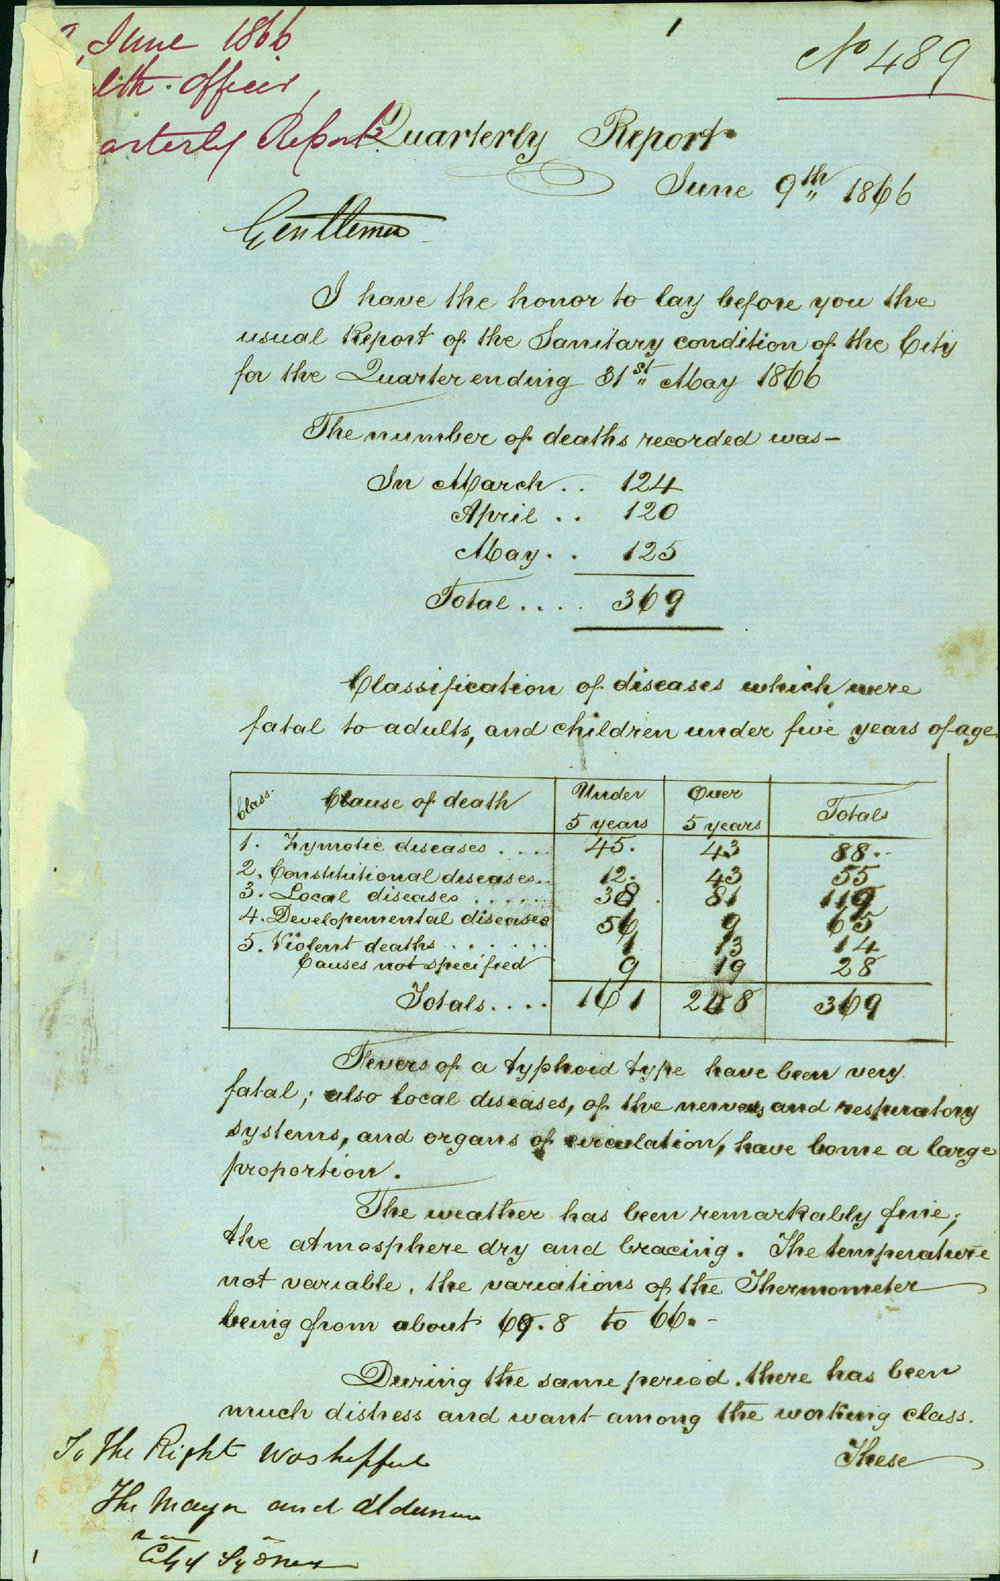 June 1866
lth. Officer,
arterly Report.
1
No 489
Quarterly Report
June 9th 1866
Gentlemen
I have the honor to lay before you the
usual Report of the Sanitary condition of the City
for the Quarter ending 31st May 1866
The number of deaths recorded was—
In March .. 124
April .. 120
May .. 125
Total .... 369
Classification of diseases which were
fatal to adults, and children under five years of age
Class. Cause of death Under 5 years Over 5 years Totals
1. Zymotic diseases .... 45. 43 88.-
2. Constitutional diseases.. 12. 43 55
3. Local diseases ...... 38 81 119
4. Developemental diseases 56 9 65
5. Violent deaths ...... 1 13 14
Causes not specified 9 19 28
Totals .... 161 208 369
Fevers of a typhoid type have been very
fatal; also local diseases, of the nervous and respiratory
systems, and organs of circulation, have borne a large
proportion.
The weather has been remarkably fine;
the atmosphere dry and bracing. The temperature
not variable, the variations of the Thermometer
being from about 69.8 to 66.-
During the same period, there has been
much distress and want among the working class.
These
To The Right Worshipful
The Mayor and Aldermen
City of Sydney
1